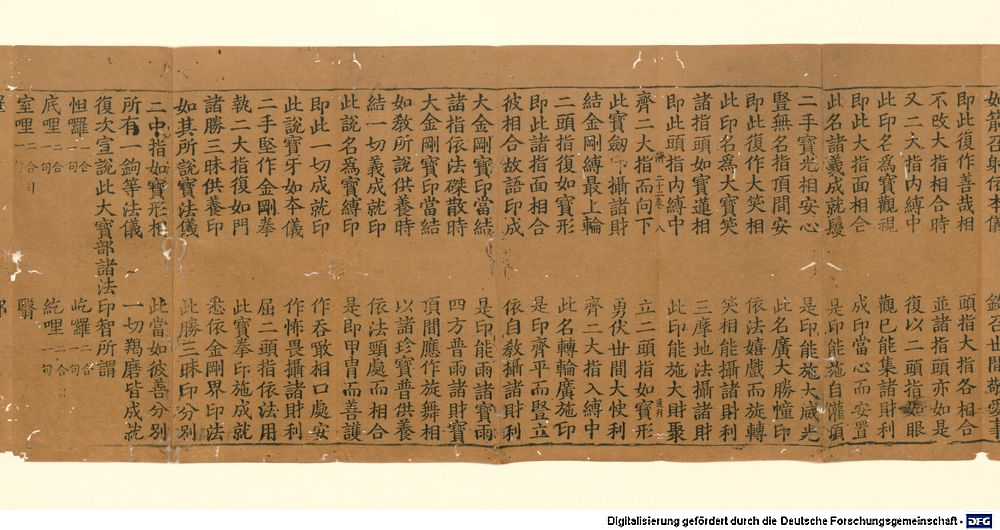 即此復作善哉相　頭指大指各相合
不改大指相合時　並諸指頭亦如是
又二大指內縛中　復以二頭指如眼
此印名為寶觀視　觀已能集諸財利
即此大指面相合　成印當心而安置
此名諸義成就鬘　是印能施自灌頂
二手寶光相安心　是印能施大威光
豎無名指頂間安　此名廣大勝幢印
即此復作大笑相　依法嬉戲而旋轉
此印名為大寶笑　笑相能攝諸財利
諸指頭如寶蓮相　三摩地法攝諸財
即此頭指內縛中　此印能施大財聚
齊二大指而向下　立二頭指如寶形
此寶劒印攝諸財　勇伏世間大使利
結金剛縛最上輪　齊二大指入縛中
二頭指復如寶形　此名轉輪廣施印
即此諸指面相合　是印齊平而豎立
彼相合故語印成　依自教攝諸財利
大金剛寶印當結　是印能雨諸寶雨
諸指依法磔散時　四方普雨諸財寶
大金剛寶印當結　頂間應作旋舞相
如教所說供養時　以諸珍寶普供養
結一切義成就印　依法頸處而相合
此說名為寶縛印　是即甲冑而善護
即此一切成就印　作吞噉相口處安
此說寶牙如本儀　作怖畏攝諸財利
二手堅作金剛拳　屈二頭指依法用
執二大指復如門　此寶拳印施成就
諸勝三昧供養印　悉依金剛界印法
如其所說寶法儀　此勝三昧印分別
二中指如寶形相　此當如彼善分別
所有一鉤等法儀　一切羯磨皆成就
復次宣說此大寶部諸法印智所謂
怛囉二合一句　屹囉二合一句
底哩二合一句　紇哩二合一句
室哩二合一句　翳
Digitalisierung gefördert durch die Deutsche Forschungsgemeinschaft - DFG